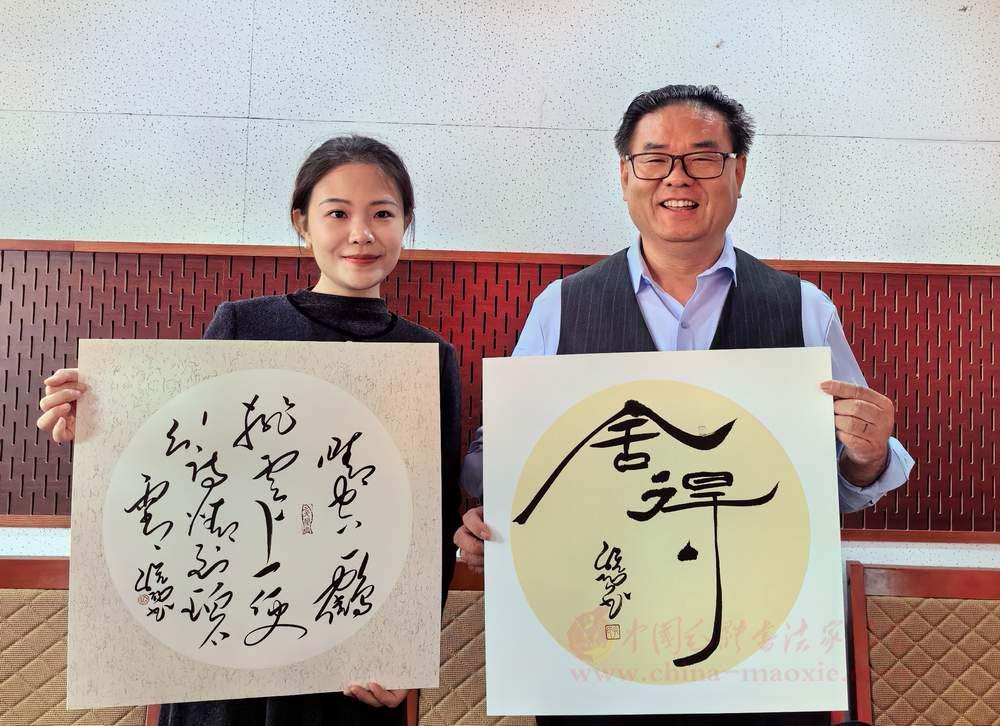 晴空一鶴
排云上便
引诗情到碧
霄
舍得
中国毛体书法家
www.china-maoxie.